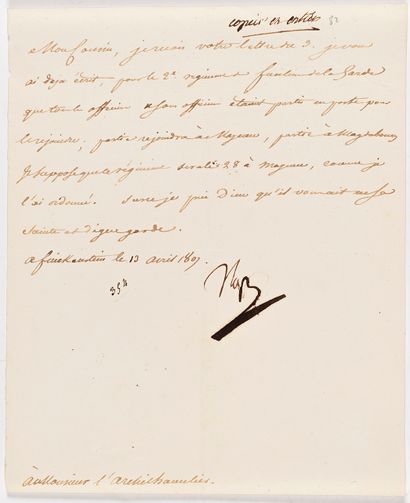 copiée en entier 32
Mon Cousin, je reçois votre lettre du 3. je vous
ai déjà écrit, pour le 2e régiment de fusiliers de la Garde
que tous les officiers et sous officiers étaient partis en poste pour
le rejoindre; partie rejoindra à Mayence, partie à Magdebourg
Je suppose que le régiment sera le 28 à Mayence, comme je
l'ai ordonné. Sur ce je prie Dieu qu'il vous ait en sa
Sainte et digne garde.
a finckenstein le 13 avril 1807.
Nap
à Monsieur l'archichancelier.